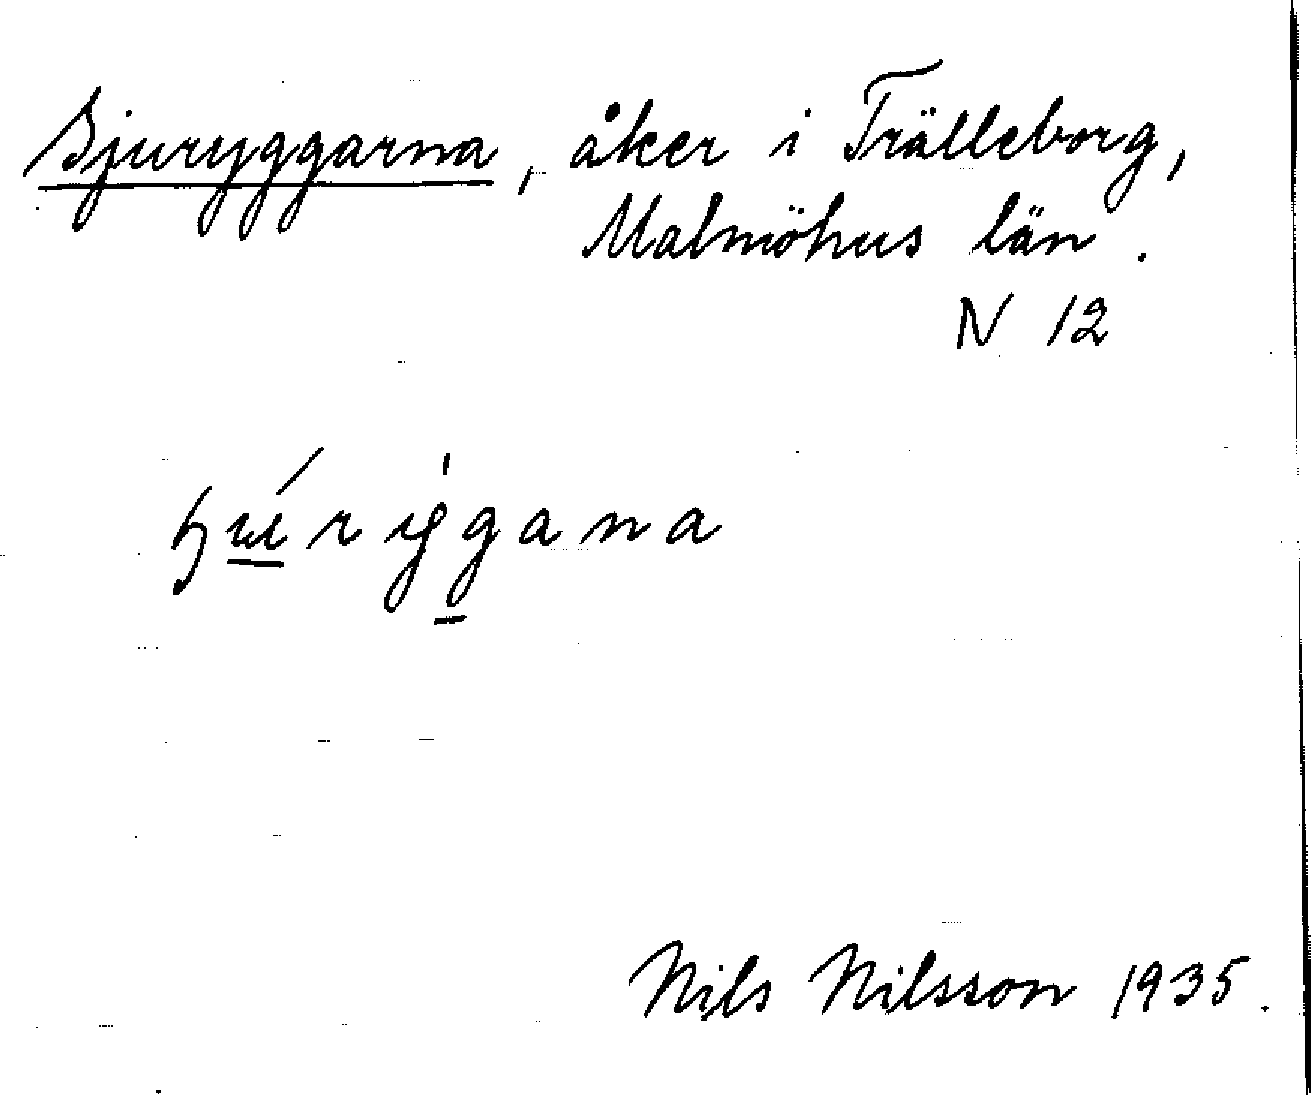 Sjuryggarna, åker i Trälleborg,
Malmöhus län.
N 12
Nils Nilsson 1935.